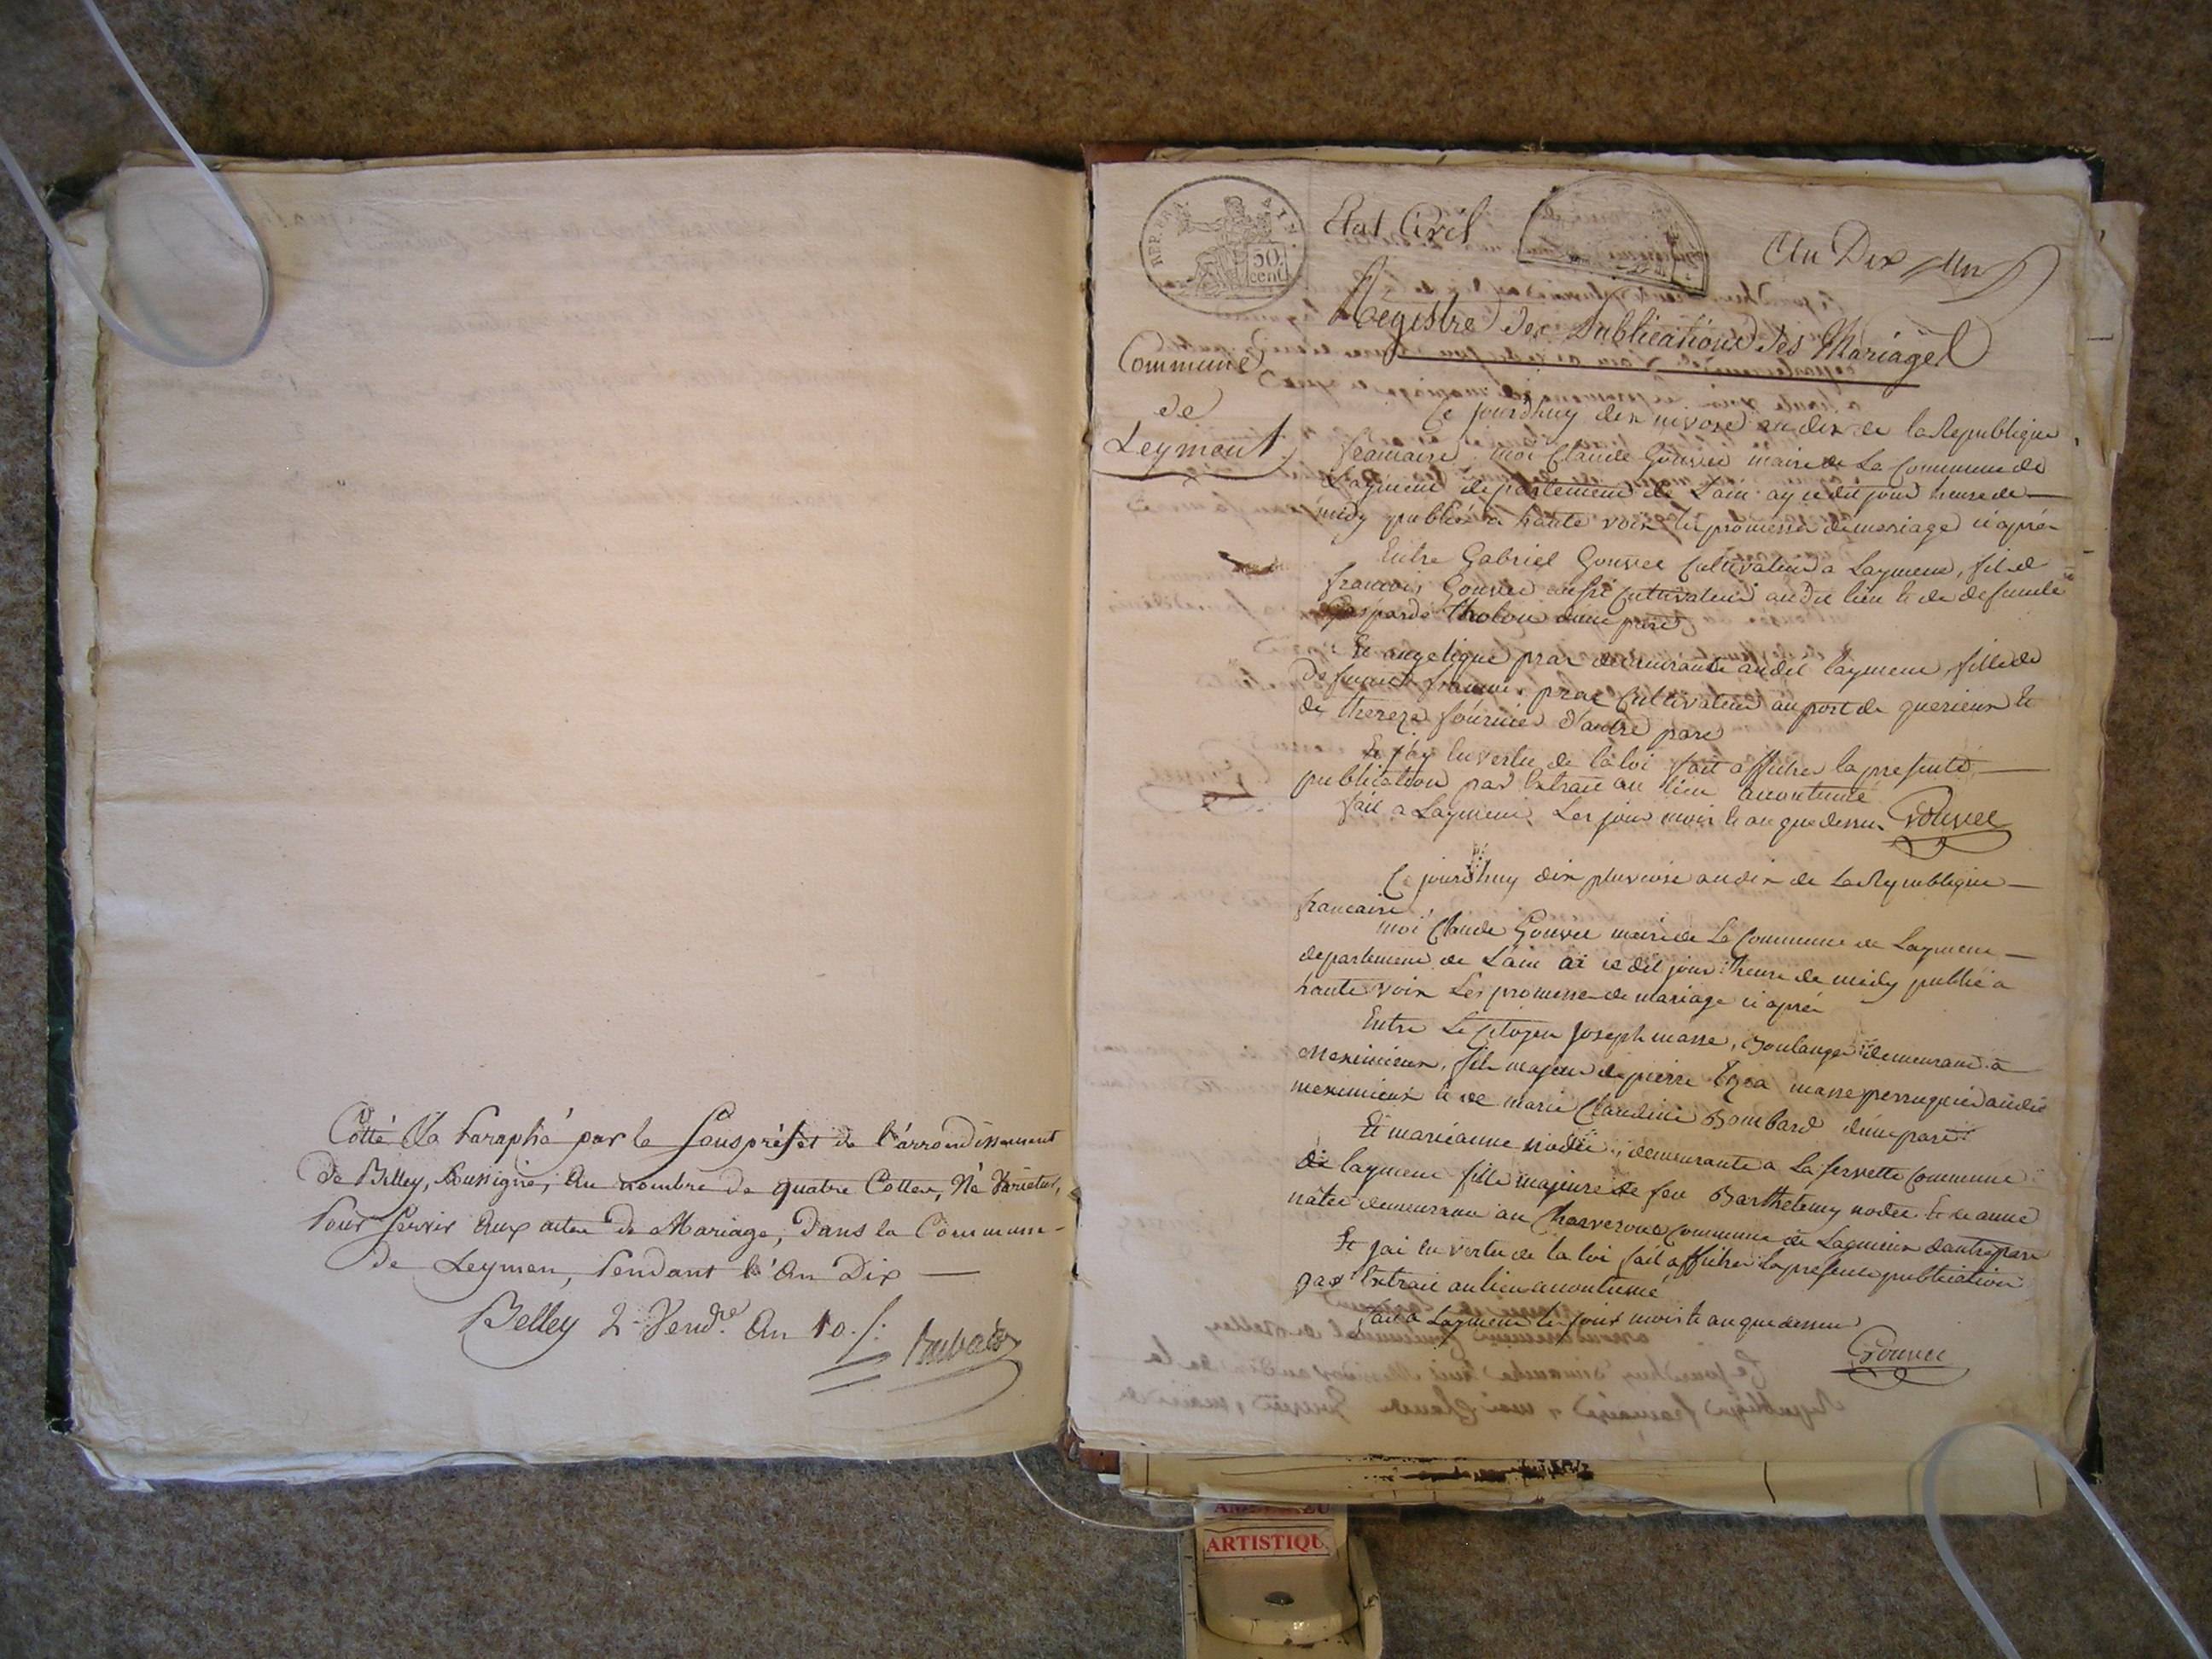 Cotté Et Paraphé par le Souspréfet de l'arrondissement
de Belley, Soussigné, Au nombre de quatre Cottes, Né Varietur,
Pour Servir Aux actes de Mariage, Dans la Commune
de Leymen, Pendant l'An Dix —
Belley 2 Vend.re An 10 ./.
REP. FRA.
50
cent
Etat Civil
An Dix
Registre des Publications des Mariages
Commune
de
Leyment
Ce jourdhuy dix nivose an dix de la Republique
francaise moi Claude Gouvee maire de La Commune de
Laymen departement de Lain ay ce dit jour heure de —
midy publié a haute voix les promesses de mariage ci aprés
Entre Gabriel Gouvee Cultivateur a Laymen, fils de
francois Gouvee aussi Cultivateur au dit lieu et de defunte
gasparde tholon dune part
Et angelique prax demeurante audit laymen, fille de
defunt prax Cultivateur au port de querieux et
de thereze fournier d'autre part
Et j'ay En vertu de la loi fait afficher la presente —
publication par Extrait au lieu accoutumé
fait a Laymen Les jour mois et an que dessus Gouvee
Ce jourdhuy dix pluviose an dix de La Republique —
francaise
moi Claude Gouvee maire de La Commune de Laymen —
departement de Lain ai ce dit jour heure de midy publié a
haute voix Les promesse de mariage ci aprés
Entre Le Citoyen Joseph masse, Boulanger demeurant a
Meximieux, fils majeur de pierre masse perruquier audit
meximieux et de marie Claudine Bombard dune part
Et marieanne nodet, demeurante a La servette Commune
de laymen fille majeure de feu Barthelemy nodet Et de anne
demeurant au Commune de Lagnieu dautre part
Et jai En vertu de la loi fait afficher La presente publication
par Extrait au lieu accoutumé
fait a Laymen les jour mois et an que dessus
Gouvee
ARTISTIQU